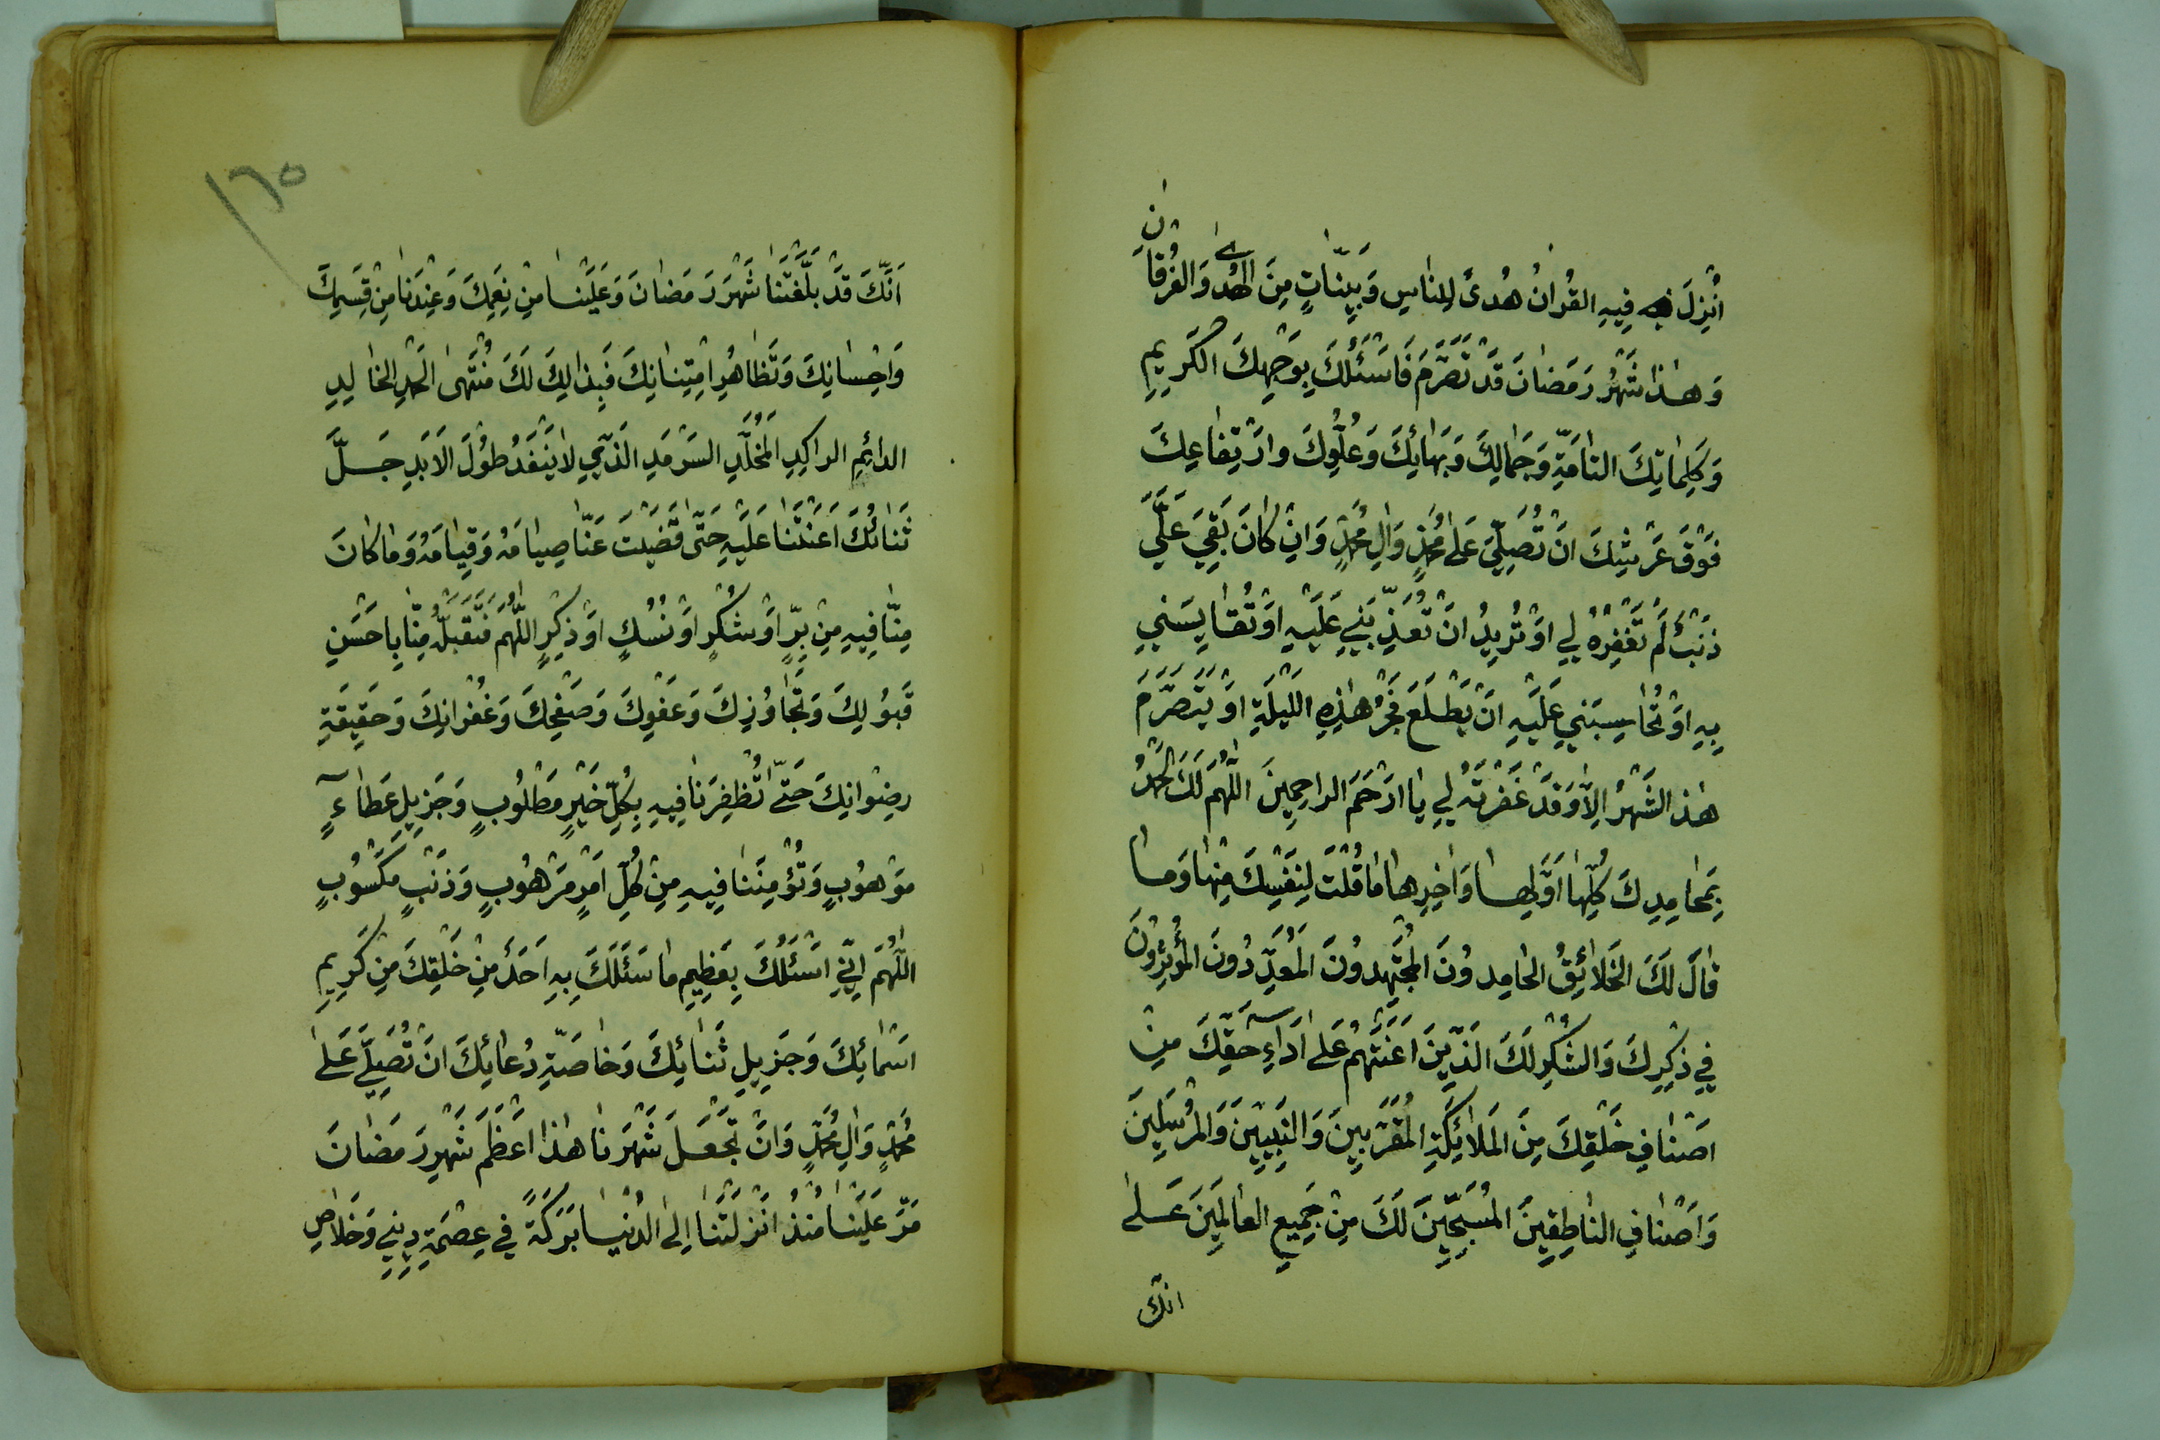 اُنْزِلَ فِيهِ القُرْانُ هُدىً لِلنّاسِ وَبَيِّناتٍ مِنَ الْهُدىٰ وَالفُرْقانِ
وَهٰذا شَهْرُ رَمَضانَ قَدْ تَصَرَّمَ فَاَسْئَلُكَ بِوَجْهِكَ الكَرِيمِ
وَكَلِماتِكَ التامَّةِ وَجَمالِكَ وَبَهائِكَ وَعُلُوِّكَ وارْتِفاعِكَ
فَوْقَ عَرْشِكَ انْ تُصَلِّيَ عَلىٰ مُحَمَّدٍ وَالِ مُحَمَّدٍ وَانْ كانَ بَقِيَ عَلَيَّ
ذَنْبٌ لَمْ تَغْفِرْهُ لِي اوْ تُرِيدُ انْ تُعَذِّبَنِي عَلَيْهِ اوْ تُقايِسَنِي
بِهِ اوْ تُحاسِبَنِي عَلَيْهِ انْ يَطْلَعَ فَجْرُ هٰذِهِ اللَيْلَةِ اوْ يَتَصَرَّمَ
هٰذا الشَهْرُ الّا وَقَدْ غَفَرْتَهُ لِي يا ارْحَمَ الراحِمِينَ اللّٰهُمَّ لَكَ الْحَمْدُ
بِمَحامِدِكَ كُلِّها اَوَّلِها وَاٰخِرِها ما قُلْتَ لِنَفْسِكَ مِنْها وَما
قالَ لَكَ الخَلائِقُ الحامِدُونَ المُجْتَهِدُونَ المُعَدِّدُونَ المُؤْثِرُونَ
فِي ذِكْرِكَ وَالشُكْرِ لَكَ الَّذِينَ اَعَنْتَهُمْ عَلىٰ اَداءِ حَقِّكَ مِنْ
اصْنافِ خَلْقِكَ مِنَ المَلائِكَةِ المُقَرَّبِينَ وَالنَبِيِّينَ وَالمُرْسَلِينَ
وَاَصْنافِ الناطِقِينَ المُسَبِّحِينَ لَكَ مِنْ جَمِيعِ العالَمِينَ عَلىٰ
انّك
١٦٥
اَنَّكَ قَدْ بَلَّغْتَنا شَهْرَ رَمَضانَ وَعَلَيْنا مِنْ نِعَمِكَ وَعِنْدَنا مِنْ قِسَمِكَ
وَاِحْسانِكَ وَتَظاهُرِ امْتِنانِكَ فَبِذالِكَ لَكَ مُنْتَهىٰ الْحَمْدِ الخالِدِ
الدائِمِ الراكِدِ المُخَلَّدِ السَرْمَدِ الَّذِي لا يَنْفَدُ طُوْلَ الاَبَدِ جَلَّ
ثَنائُكَ اَعَنْتَنا عَلَيْهِ حَتّىٰ قَضَيْتَ عَنّا صِيامَهُ وَقِيامَهُ وَما كانَ
مِنّا فِيهِ مِنْ بِرٍّ اَوْ شُكْرٍ اوْ نُسُكٍ اوْ ذِكْرٍ اللّٰهُمَّ فَتَقَبَّلْهُ مِنّا بِاَحْسَنِ
قَبُوْلِكَ وَتَجاوُزِكَ وَعَفْوِكَ وَصَفْحِكَ وَغُفْرانِكَ وَحَقِيقَةِ
رِضْوانِكَ حَتّىٰ تُظْفِرَنا فِيهِ بِكُلِّ خَيْرٍ مَطْلُوبٍ وَجَزِيلِ عَطاءٍ
مَوْهُوبٍ وَتُؤْمِنَنا فِيهِ مِنْ كُلِّ امْرٍ مَرْهُوبٍ وَذَنْبٍ مَكْسُوبٍ
اللّٰهُمَّ اِنِّي اسْئَلُكَ بِعَظِيمِ ما سَئَلَكَ بِهِ اَحَدٌ مِنْ خَلْقِكَ مِنْ كَرِيمِ
اسْمائِكَ وَجَزِيلِ ثَنائِكَ وَخاصَّةِ دُعائِكَ انْ تُصَلِّيَ عَلىٰ
مُحَمَّدٍ وَالِ مُحَمَّدٍ وَانْ تَجْعَلَ شَهْرَنا هٰذا اَعْظَمَ شَهْرِ رَمَضانَ
مَرَّ عَلَيْنا مُنْذُ انْزَلْتَنا اِلىٰ الدُنْيا بَرَكَةً فِي عِصْمَةِ دِينِي وَخَلاصِ